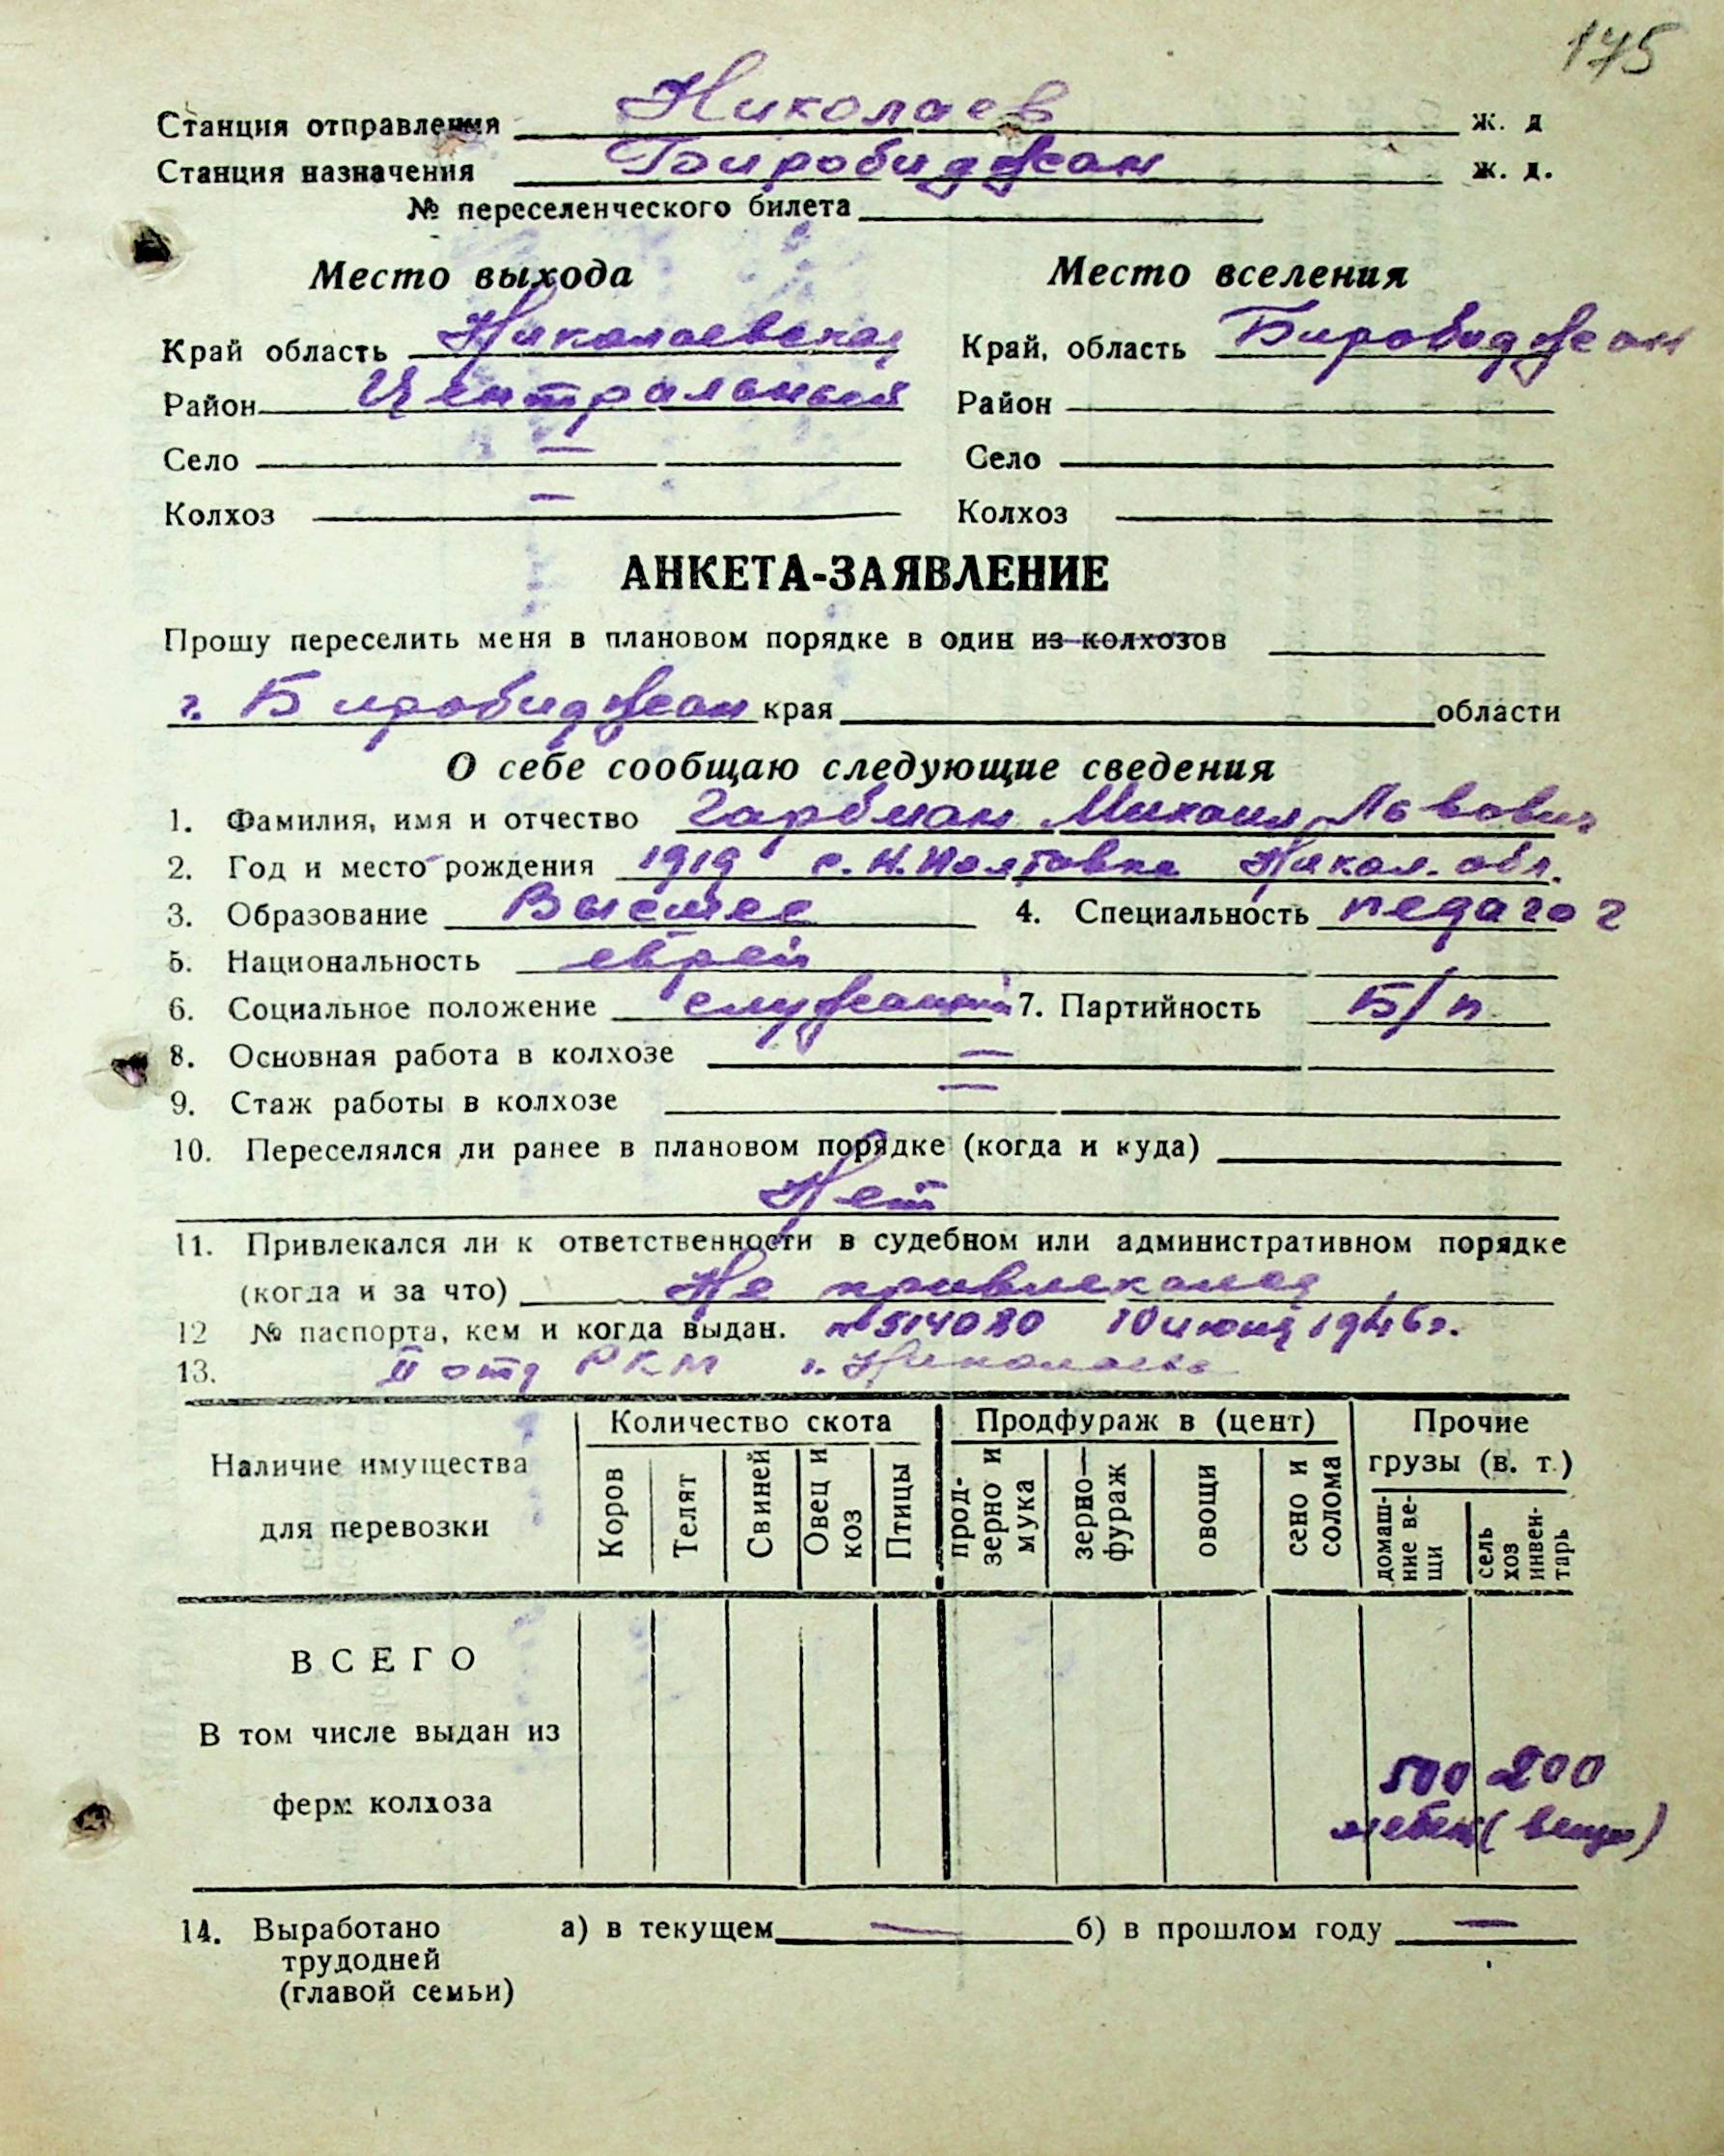 175
Станция отправления Николаев ж. д
Станция назначения Биробиджан ж. д.
№ переселенческого билета
Место выхода Место вселения
Край область Николаевская Край, область Биробиджан
Район Центральный Район
Село — Село
Колхоз — Колхоз
АНКЕТА-ЗАЯВЛЕНИЕ
Прошу переселить меня в плановом порядке в один из колхозов
г. Биробиджан края области
О себе сообщаю следующие сведения
1. Фамилия, имя и отчество Гарбман Михаил Львович
2. Год и место рождения 1919 с. Н. Полтовка Никол. обл.
3. Образование Высшее 4. Специальность педагог
5. Национальность еврей
6. Социальное положение служащий 7. Партийность Б/п
8. Основная работа в колхозе —
9. Стаж работы в колхозе —
10. Переселялся ли ранее в плановом порядке (когда и куда)
Нет
11. Привлекался ли к ответственности в судебном или административном порядке
(когда и за что) Не привлекался
12 № паспорта, кем и когда выдан. № 514080 10 июня 1946 г.
13. II отд РКМ г. Николаева
Наличие имущества для перевозки
Количество скота Продфураж в (цент) Прочие грузы (в. т.)
Коров Телят Свиней Овец и коз Птицы прод-зерно и мука зерно—фураж овощи сено и солома домаш-ние ве-щи сель хоз инвен-тарь
ВСЕГО
В том числе выдан из
ферм колхоза
500 200
мебель (вещи)
14. Выработано а) в текущем — б) в прошлом году —
трудодней
(главой семьи)